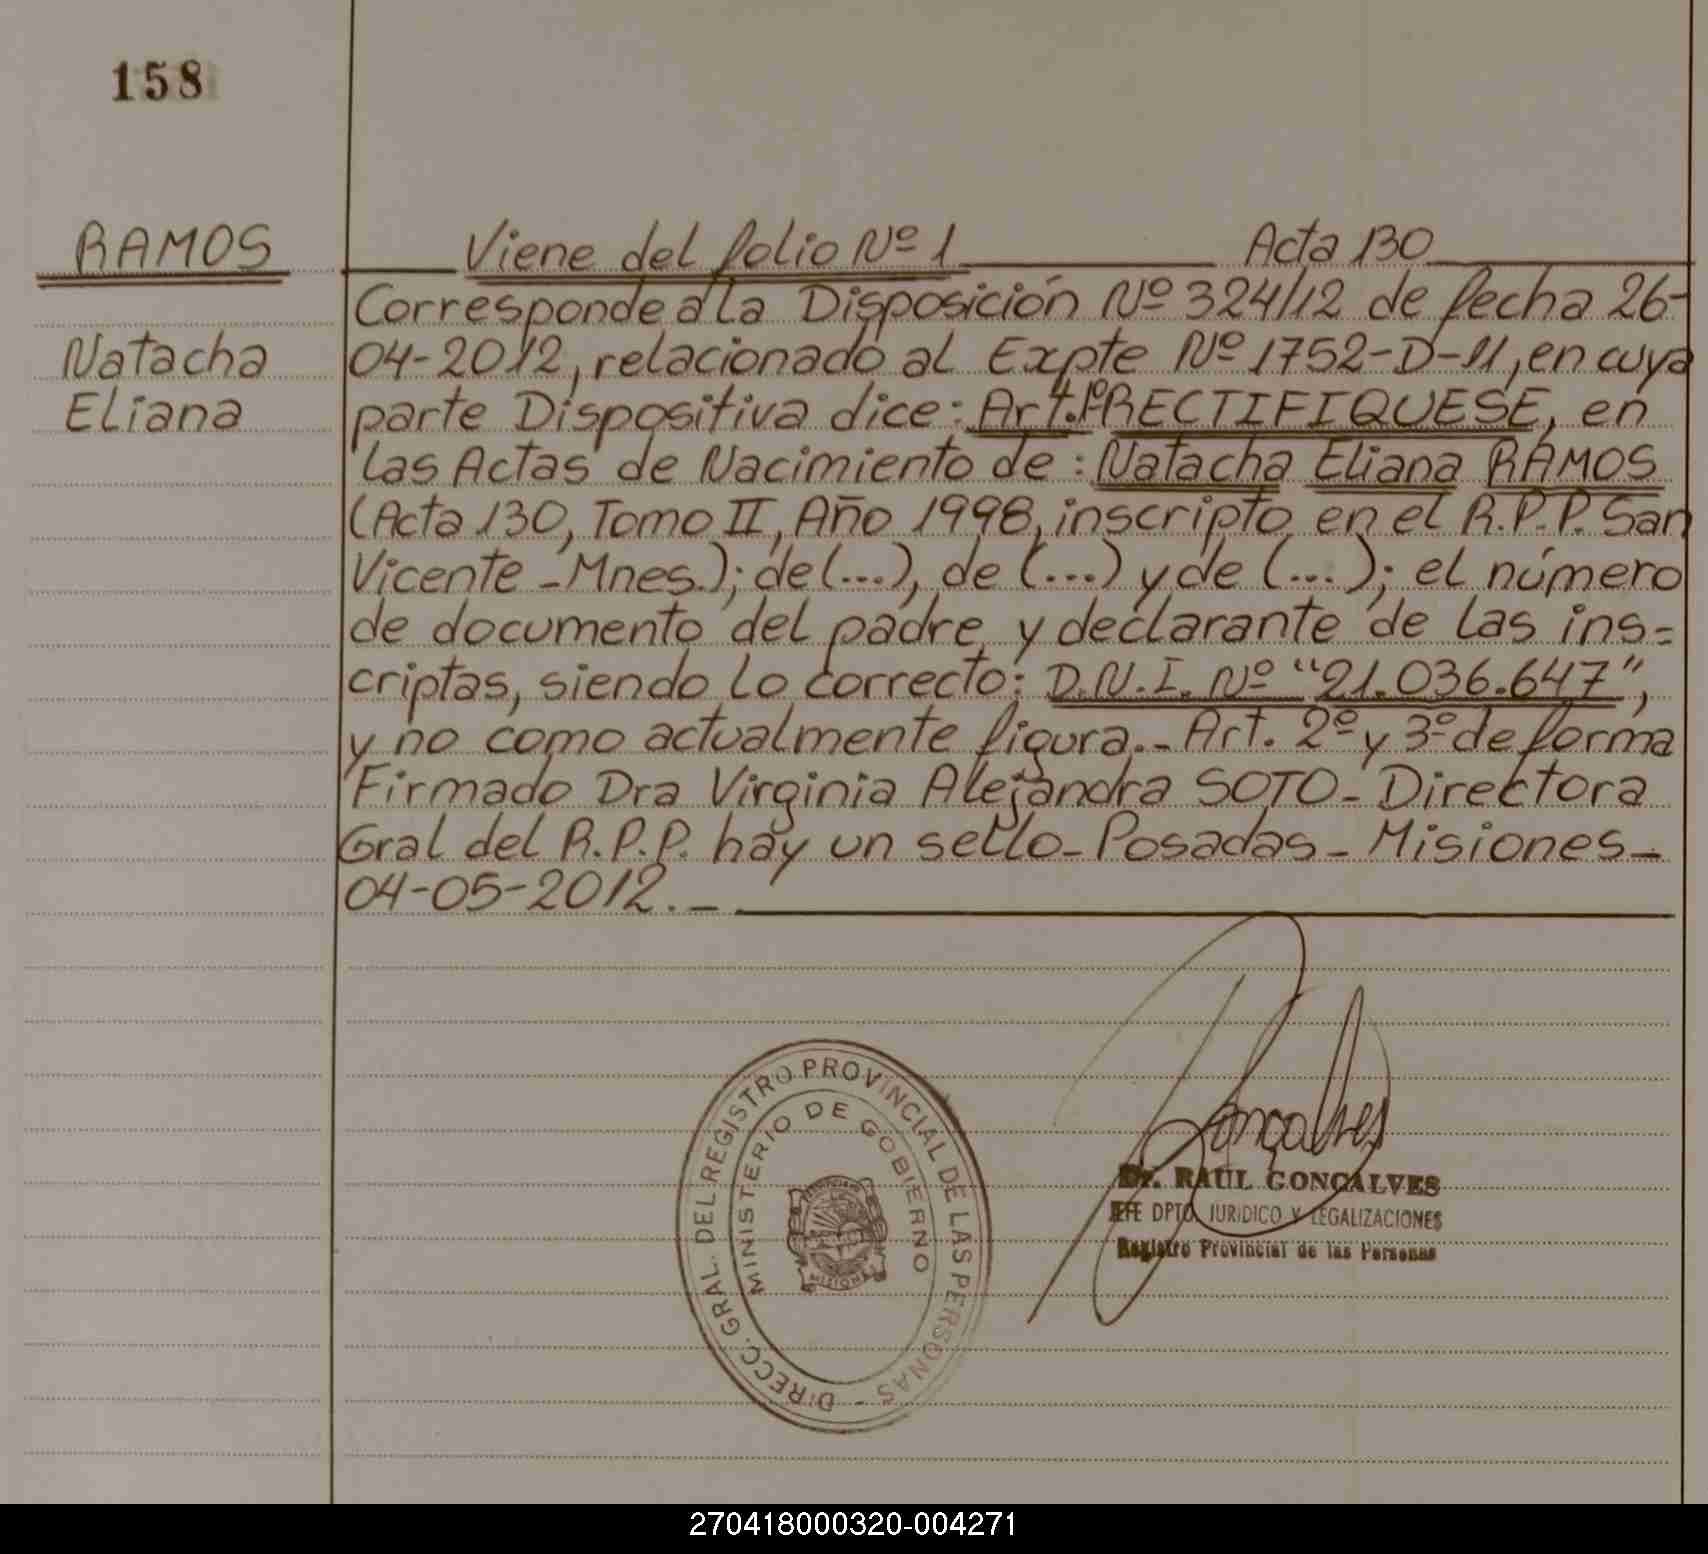 158
RAMOS
Natacha
Eliana
Viene del folio Nº 1 Acta 130
Corresponde a la Disposición Nº 324/12 de fecha 26-
04-2012, relacionado al Expte Nº 1752-D-11, en cuya
parte Dispositiva dice: Art. 1º RECTIFIQUESE, en
las Actas de Nacimiento de: Natacha Eliana RAMOS
(Acta 130, Tomo II, Año 1998, inscripto en el R.P.P. San
Vicente - Mnes.); de (...), de (...) y de (...); el número
de documento del padre y declarante de las ins=
criptas, siendo lo correcto: D.N.I. Nº "21.036.647",
y no como actualmente figura.- Art. 2º y 3º de forma
Firmado Dra Virginia Alejandra SOTO - Directora
Gral del R.P.P. hay un sello - Posadas - Misiones -
04-05-2012.-
DIRECC. GRAL. DEL REGISTRO PROVINCIAL DE LAS PERSONAS -
MINISTERIO DE GOBIERNO
MISIONES
Gonçalves
Dr. RAUL GONÇALVES
JEFE DPTO. JURIDICO Y LEGALIZACIONES
Registro Provincial de las Personas
270418000320-004271